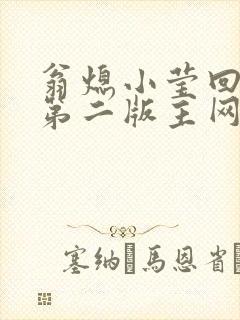 翁熄小莹回
第二版主网
塞纳·馬恩省